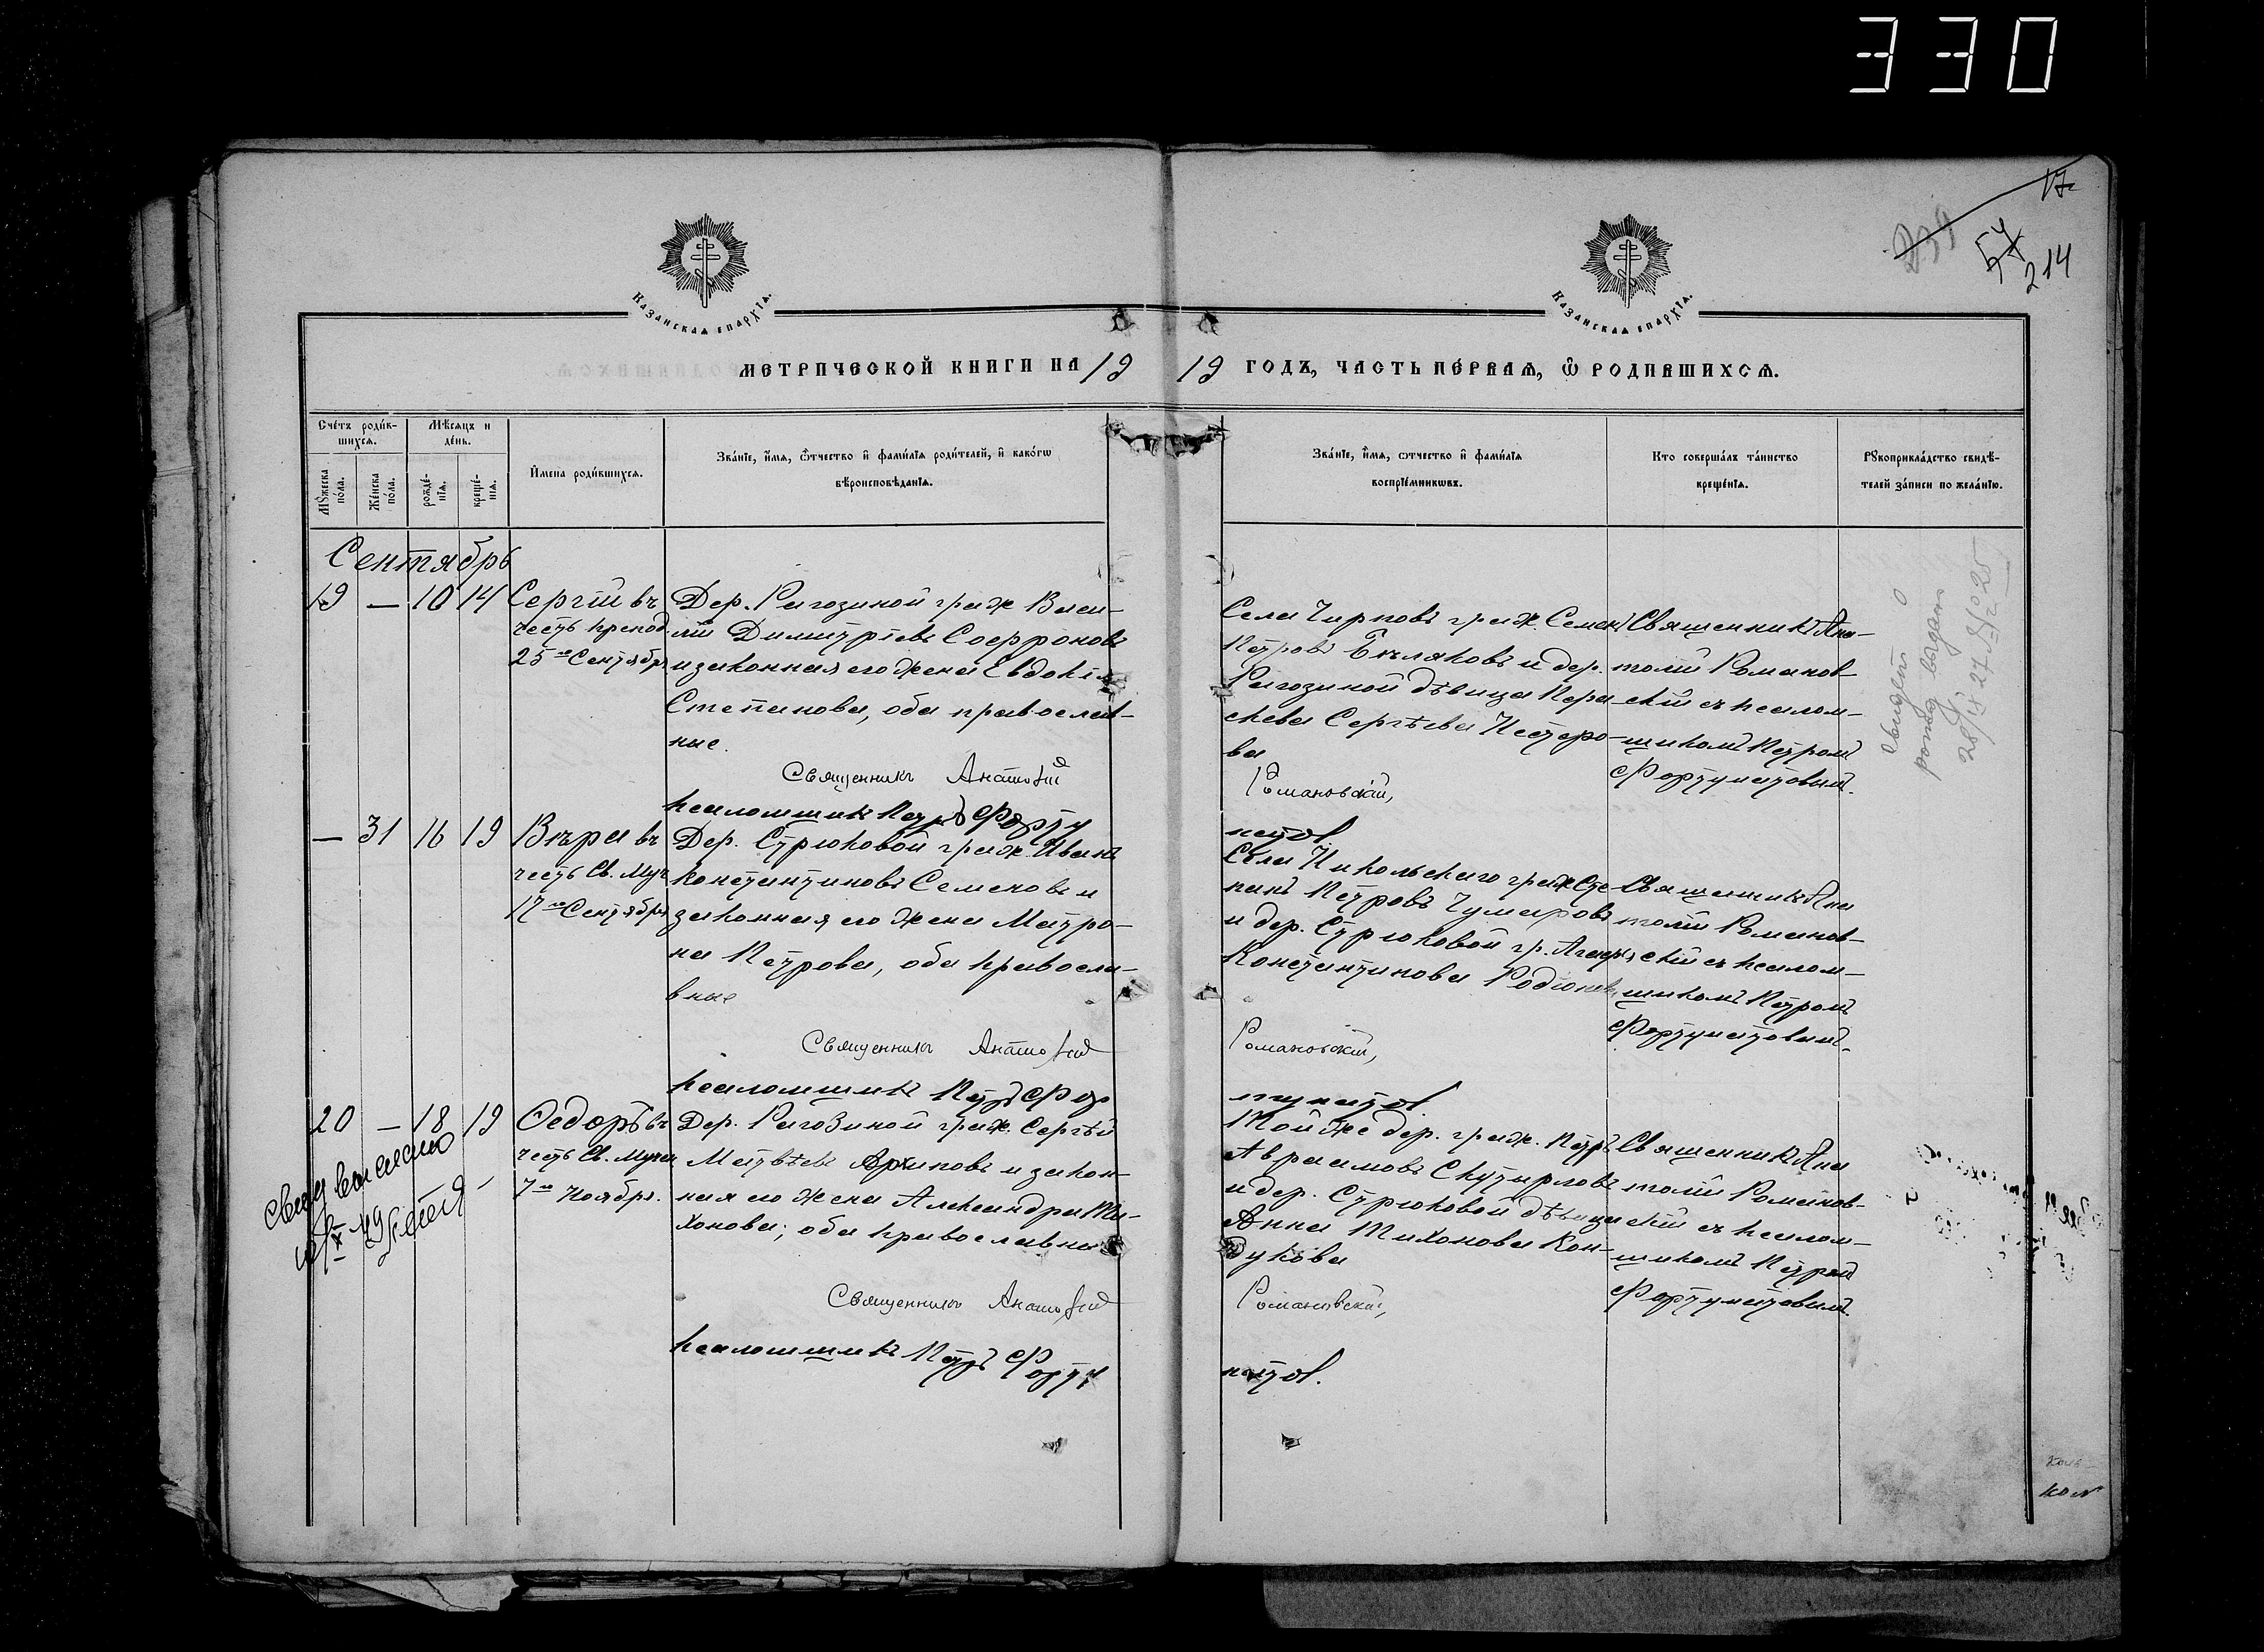 330
17
239
54
214
Казанская епархїѧ.
Казанская епархїѧ.
МЕТРИЧЕСКОЙ КНИГИ НА 19
19 ГОДЪ, ЧАСТЬ ПЕ́РВАѦ, Ѽ РОДИВШИХСѦ.
Сче́тъ роди́вшихсѧ.
Мѣ́сѧцъ и де́нь.
Мꙋ́жеска по́ла.
Же́нска по́ла.
рожде́нїѧ.
креще́нїѧ.
И́мена роди́вшихсѧ.
Зва́нїе, и́мѧ, ѻ́тчество и҆ фами́лїѧ роди́телей, и҆ како́гѡ
вѣроисповѣ́данїѧ.
Зва́нїе, и́мѧ, ѻтчество и҆ фами́лїѧ
воспрїе́мникѡвъ.
Кто соверша́лъ та́инство
креще́нїѧ.
Рꙋкоприкла́дство свидѣ́-
телей за́писи по жела́нїю.
Сентябрь
19 — 10 14
Сергій въ
честь препод.
25го Сентября
Дер. Рагозиной граж Васи-
лій Димитріевъ Софроновъ
и законная его жена Евдокія
Степанова, оба православ-
ные.
Священникъ Анатолій
псаломщикъ Петръ Форту
Села Чирповъ граж. Семенъ
Петровъ Бѣляковъ и дер.
Рагозиной дѣвица Пара-
скева Сергѣева Нестеро-
ва
Романовскій,
натов
Священникъ Ана-
толій Романов-
скій съ псалом-
щикомъ Петромъ
Фортунатовым.
о
рожд выдано
28/IX 27 № 25
— 31 16 19
Вѣра въ
честь Св. Муч
17го Сентября
Дер. Стрюковой граж. Иванъ
Константиновъ Семеновъ и
законная его жена Матро-
на Петрова, оба правосла-
вные
Священникъ Анатолій
псаломщикъ Петръ Фор
Села Никольскаго граж Сте
панъ Петровъ Чумаровъ
и дер. Стрюковой гр.
Константинова Родіонова
Романовскій,
тунатов.
Священникъ Ана
толій Романов-
скій съ псалом-
щикомъ Петромъ
Фортунатовым.
20 — 18 19
Ѳедоръ въ
честь Св. Мучен
7го Ноября.
Дер. Рагозиной граж. Сергѣй
Матвѣевъ Архиповъ и закон-
ная его жена Александра Ти-
хонова; оба православные
Священникъ Анатолій
псаломщикъ Петръ Форту
Той же дер. граж. Петръ
Авраамовъ Скутировъ
и дер. Стрюковой дѣвица
Анна Тихонова Кон-
дукова
Романовскій,
натов.
Священникъ Ана
толій Романов-
скій съ псалом-
щикомъ Петромъ
Фортунатовым.